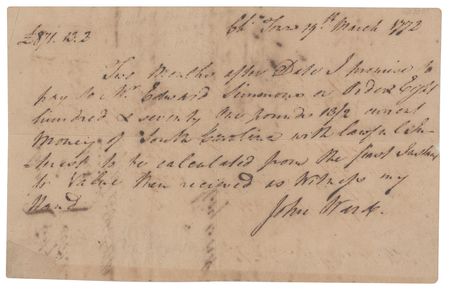 £871.13.3 Chs Town 19th March 1772
Two Months after Date I promise to
pay to Mr Edward Simmons or Order Eight
hundred & seventy one pounds 13/3 current
Money of South Carolina with lawful
to be calculated from the first
Value then recieved as Witness my
Hand
John Ward.